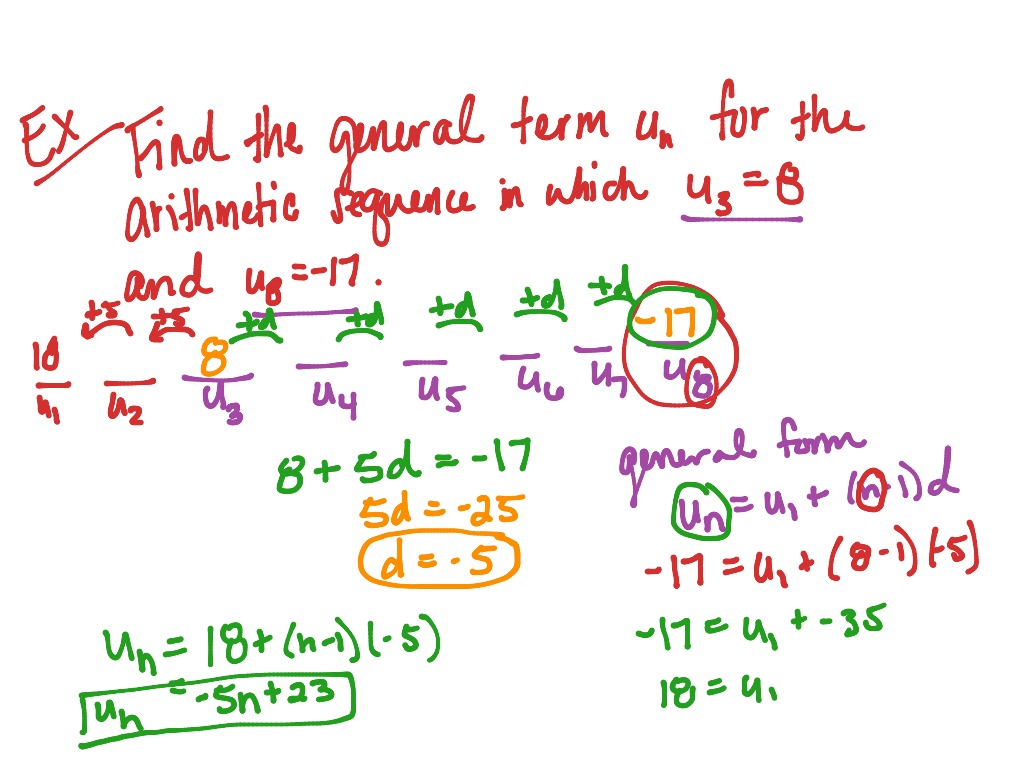 Ex Find the general term uₙ for the
arithmetic sequence in which u₃ = 8
and u₈ = -17.
+5 +5 +d +d +d +d +d
18 8 -17
u₁ u₂ u₃ u₄ u₅ u₆ u₇ u₈
8 + 5d = -17
5d = -25
d = -5
general form
uₙ = u₁ + (n-1)d
-17 = u₁ + (8-1)(-5)
-17 = u₁ + -35
18 = u₁
uₙ = 18 + (n-1)(-5)
uₙ = -5n + 23